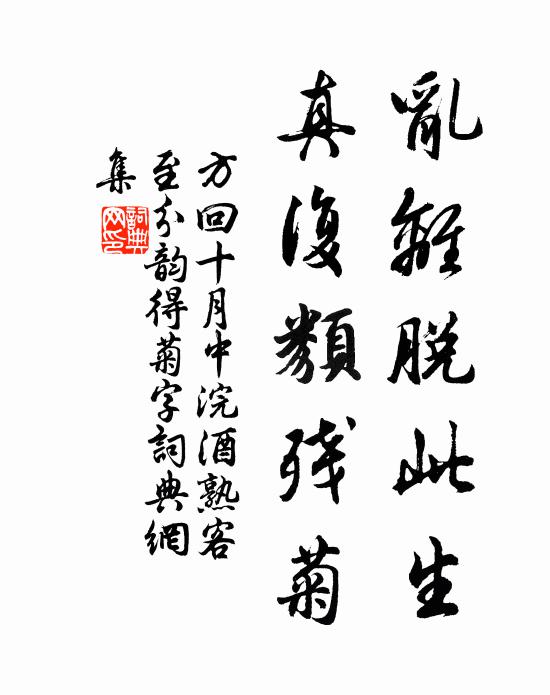 亂離脫此生
真復類残菊
方回十月中浣酒熟客
至分韵得菊字詞典網
集
詞典網印